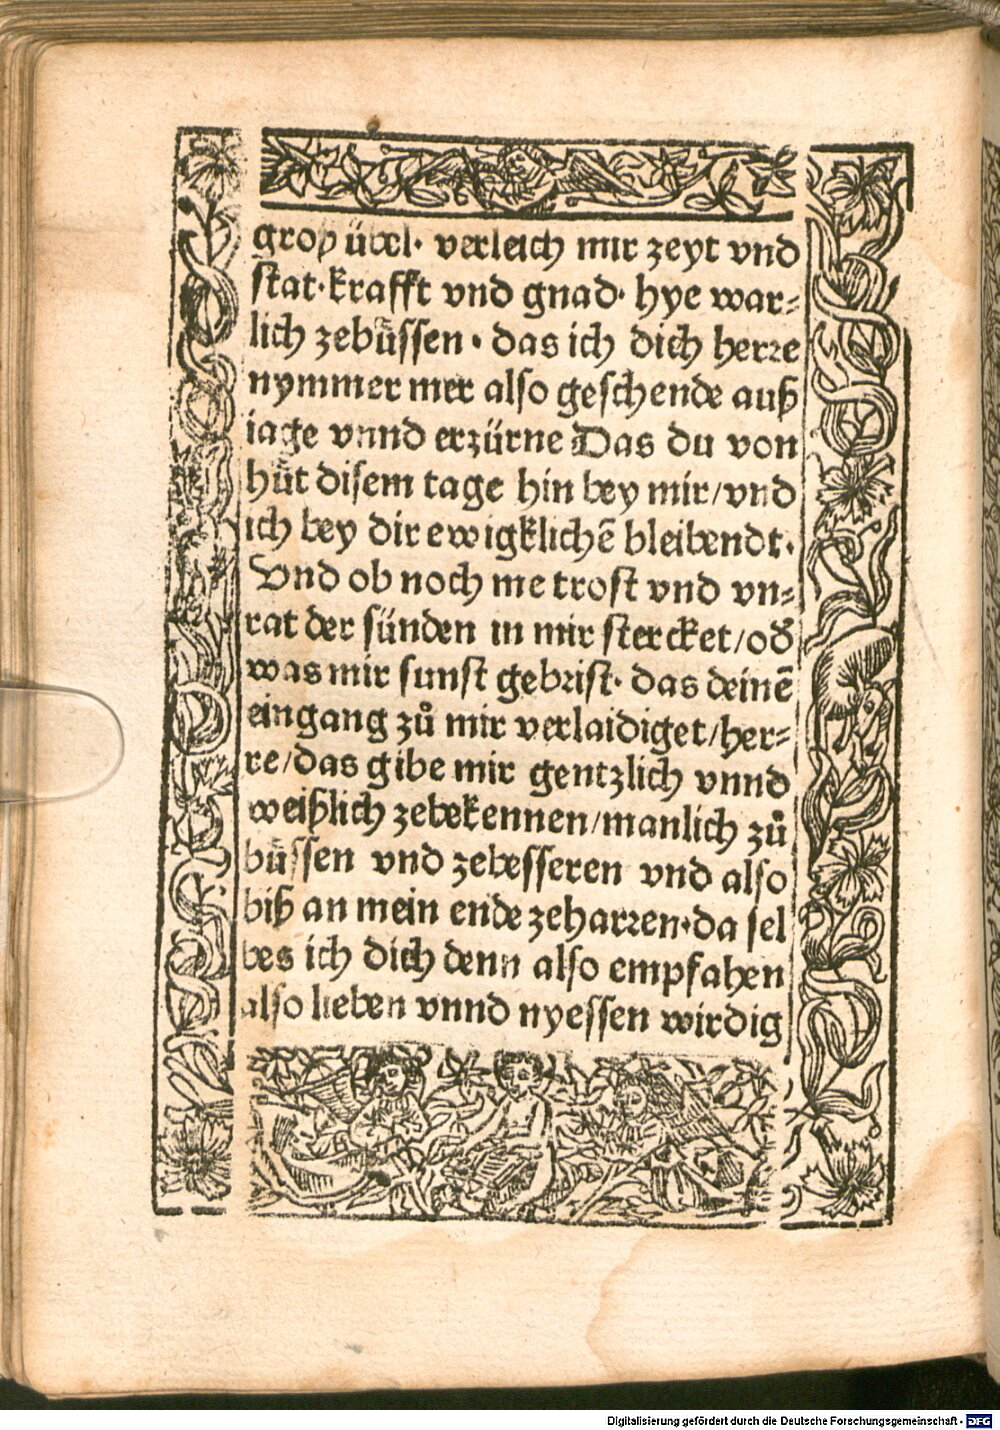 groß übel· verleich mir zeyt vnd
stat·krafft vnd gnad· hye war⸗
lich zebuͤssen · das ich dich herꝛe
nymmer mer also geschende auß
iage vnnd erzürne Das du von
huͤt disem tage hin bey mir/vnd
ich bey dir ewigklichē bleibendt.
Vnd ob noch me trost vnd vn⸗
rat der sünden in mir stercket/od̛
was mir sunst gebꝛist· das deinē
eingang zů mir verlaidiget/her⸗
re/das gibe mir gentzlich vnnd
weißlich zebekennen/manlich zů
buͤssen vnd zebesseren vnd also
biß an mein ende zeharꝛen·da sel
bes ich dich denn also empfahen
also lieben vnnd nyessen wirdig
Digitalisierung gefördert durch die Deutsche Forschungsgemeinschaft - DFG